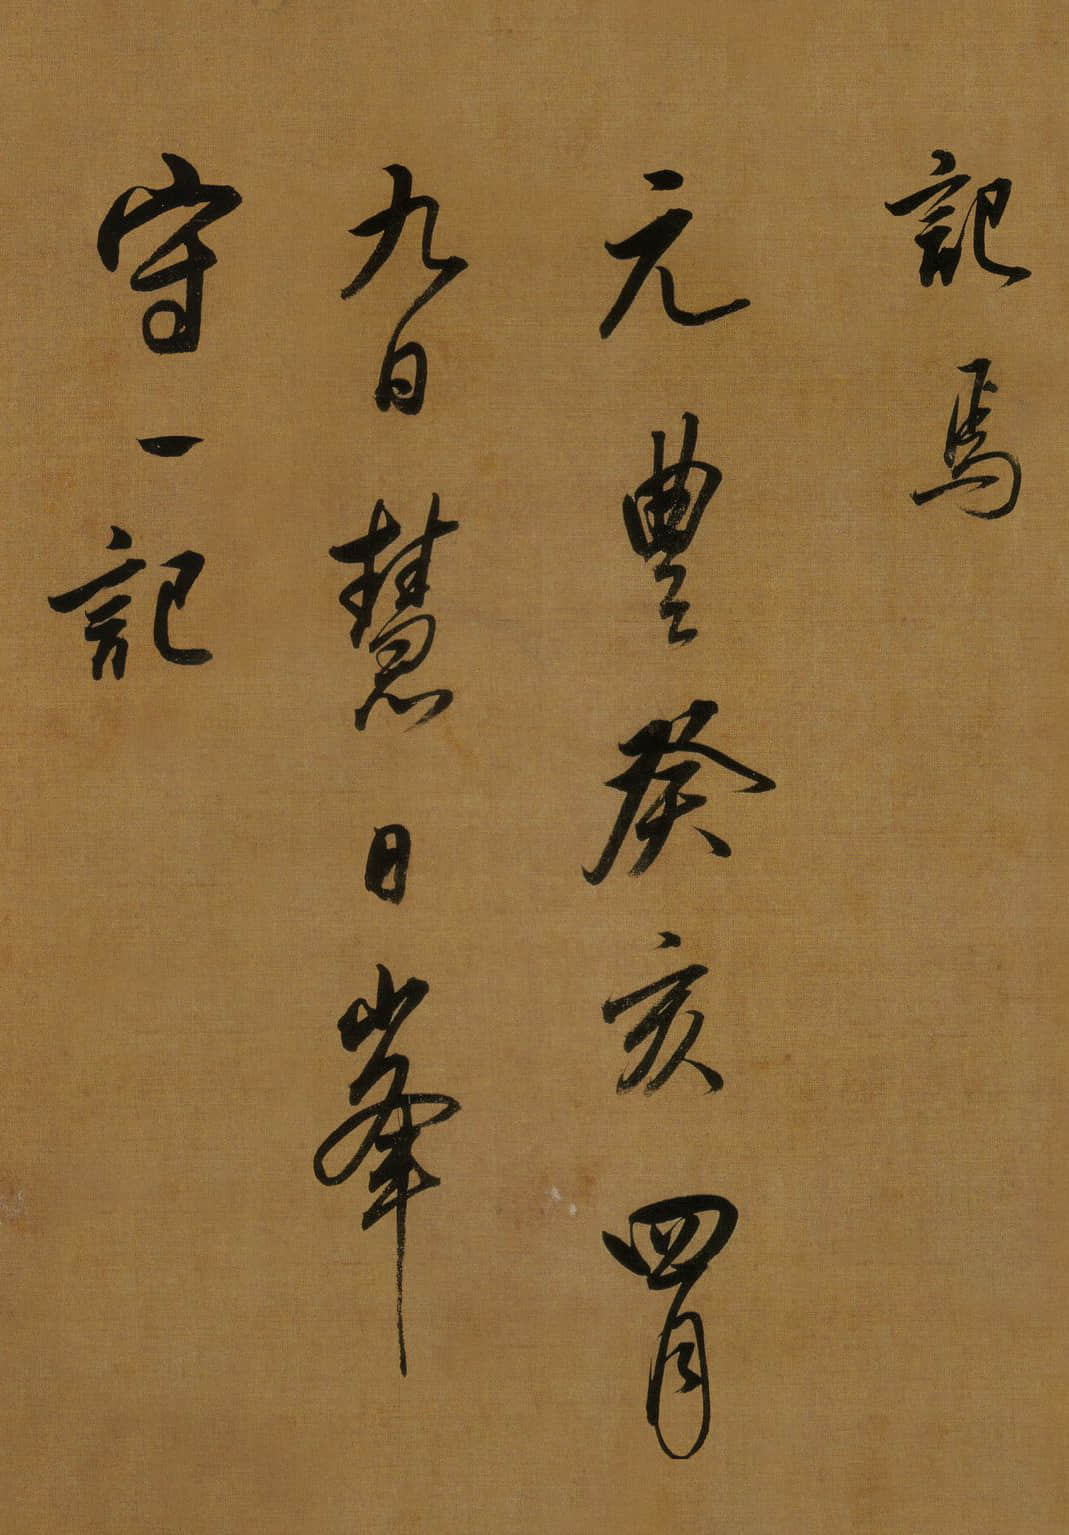 記焉
元豊癸亥四月
九日慧日峯
守一記